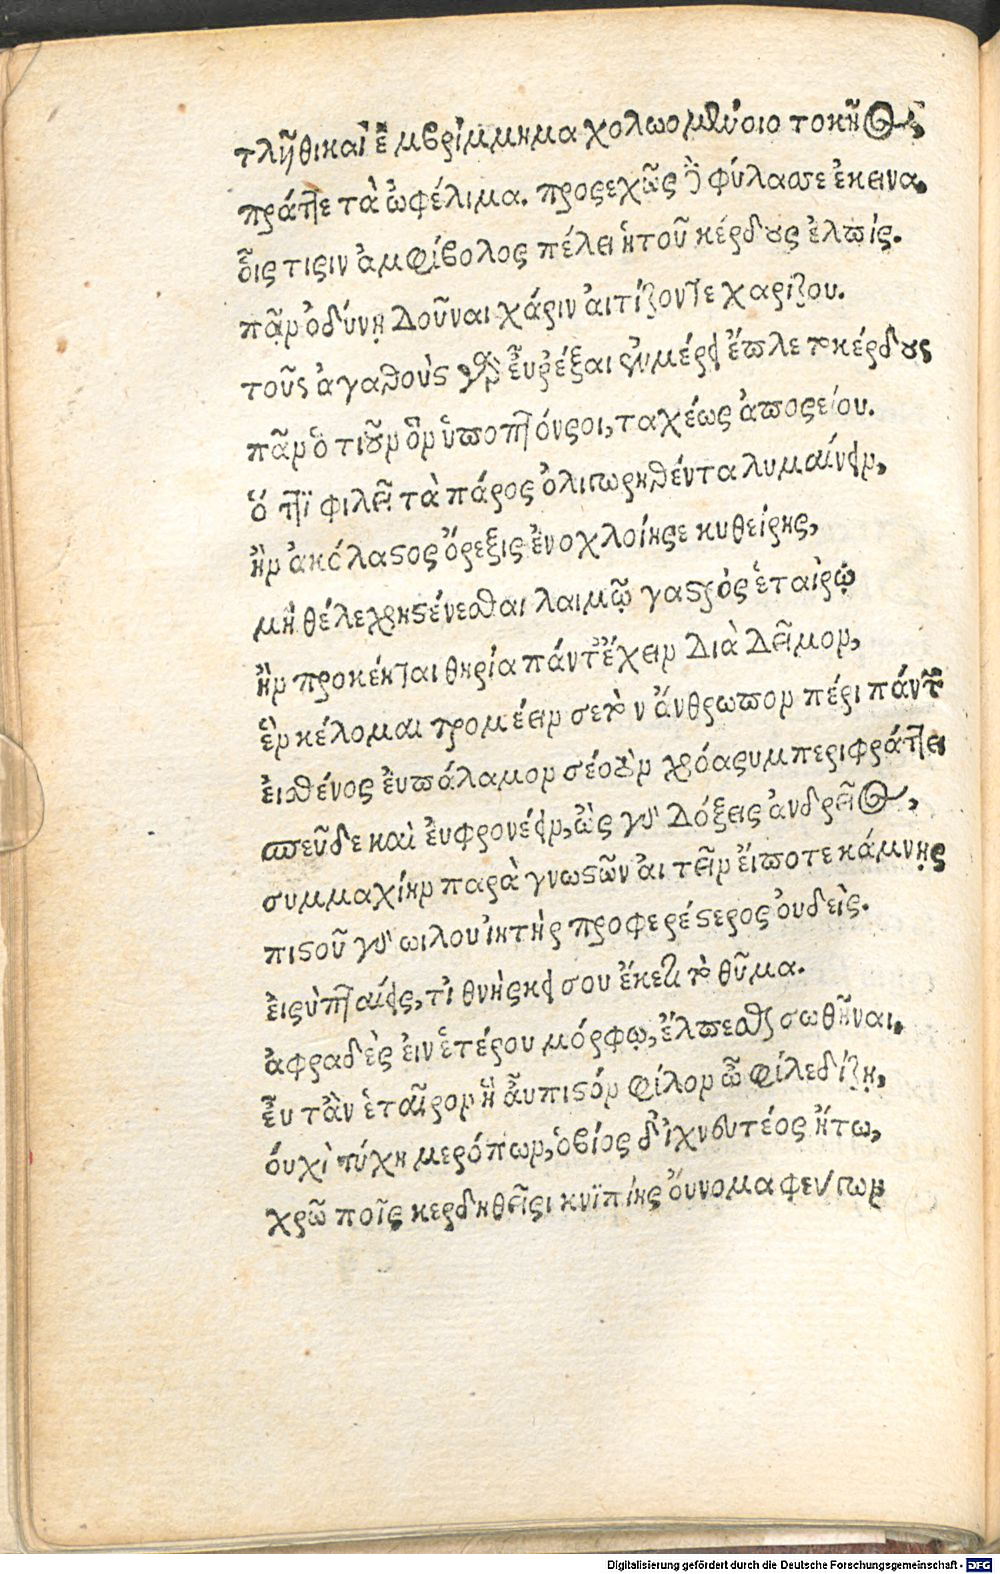 τλῆθι καὶ ἐμβρίμημα χολωομένοιο τοκῆος
πράττε τὰ ὠφέλιμα. προσεχῶς δὲ φύλασσε ἐκεῖνα.
οἷς τισιν ἀμφίβολος πέλει ἡ τοῦ κέρδους ἐλπίς.
πᾶν ὀδύνῃ δοῦναι χάριν αἰτίζοντε χαρίζου.
τοῦς ἀγαθοὺς γὰρ εὖ ῥέξαι ἐν μέρει ἔπλετο κέρδους
πᾶν ὅ τι οὖν ὂν ὑποπτόν σοι, ταχέως ἀποσείου.
ὅττι φιλεῖ τὰ πάρος ὀλιγωρηθέντα λυμαίνειν,
ἢν ἀκόλαστος ὄρεξις ἐνοχλοίησε κυθείρης,
μὴ θέλε χρηστένεσθαι λαιμῷ γαστρὸς ἑταίρῳ
ἢν προκέηται θηρία πάντ' ἔχειν διὰ δεῖμον,
ἓν κέλομαι τρομέειν σε τὸν ἄνθρωπον πέρι πάντων
εἰ σθένος εὐπάλαμον σέο οὖν χρόα συμπεριφράττει
σπεῦδε καὶ εὐφρονέειν, ὣς γὰρ δόξεις ἀνδρεῖος,
συμμαχίην παρὰ γνωστῶν αἰτεῖν εἴποτε κάμνῃς
πιστοῦ γὰρ φίλου ἰητὴρ προφερέστερος οὐδεὶς.
εἰ σὺ πταίεις, τί θνήσκει σου ἕνεκα τὸ θῦμα.
ἀφραδὲς εἰν ἑτέρου μόρφῳ, ἔλπεσθαι σωθῆναι.
εὖτ' ἂν ἑταῖρον ἢ αὖ πιστόν φίλον ὦ φίλε δίζῃ,
οὐχὶ τύχη μερόπων, ὁ βίος δ' ἰχνευτέος ἤτω,
χρῶ ποῖς κερδηθεῖσι κνϊπίης οὔνομα φεύγων